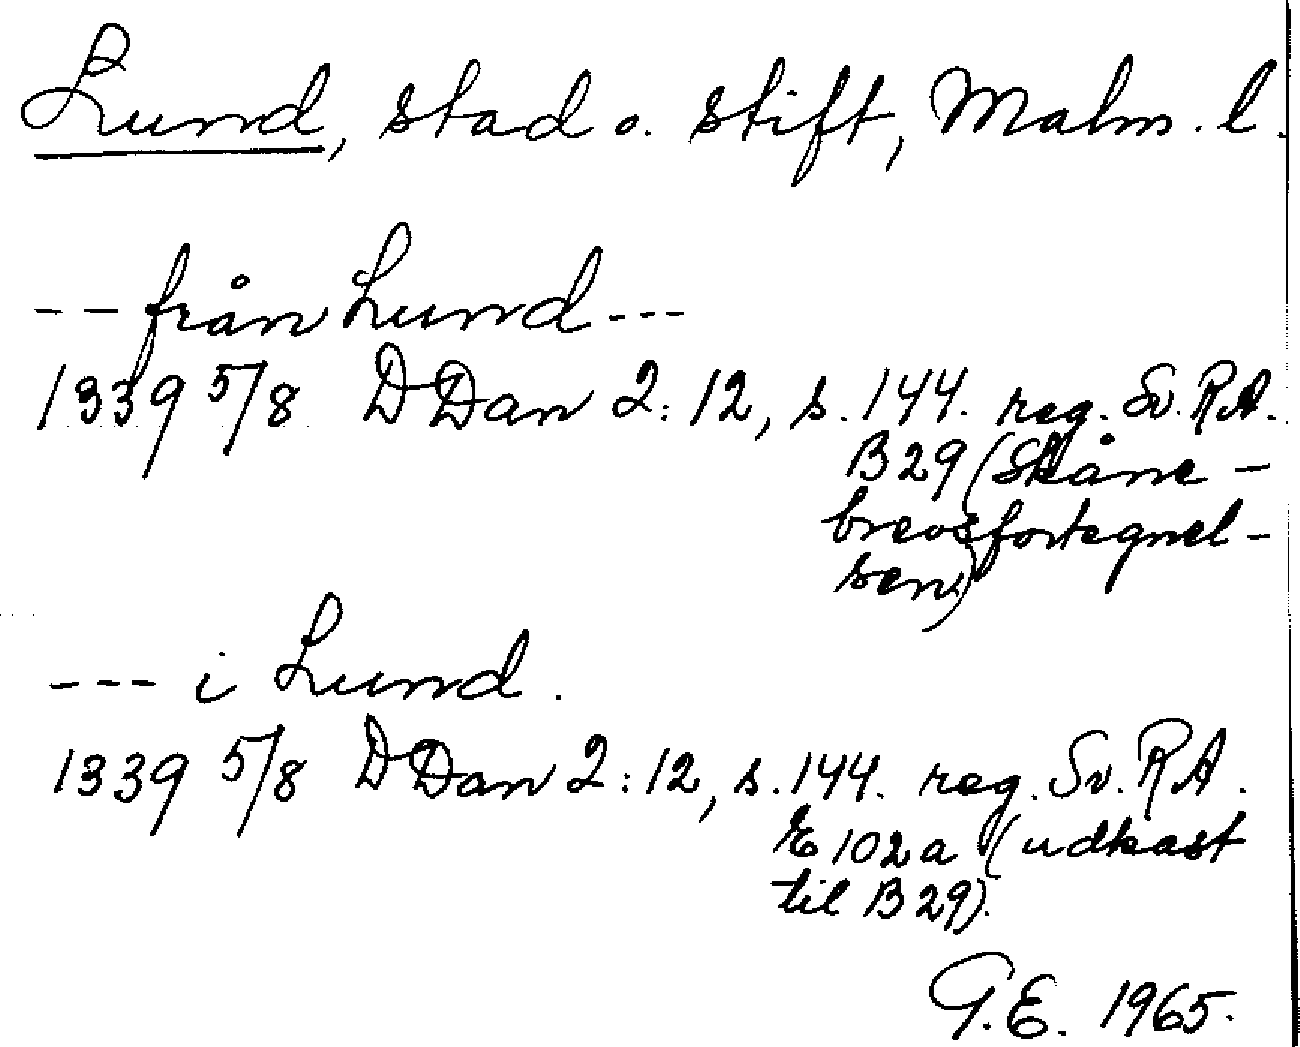 Lund, stad o. stift, Malm. l.
-- från Lund ---
1339 5/8 DDan 2:12, s. 144. reg. Sv. RA.
B29 (Skåne-
brevsfortegnel-
sen)
--- i Lund.
1339 5/8 DDan 2:12, s. 144. reg. Sv. RA.
E 102a (udkast
til B29).
G.E. 1965.